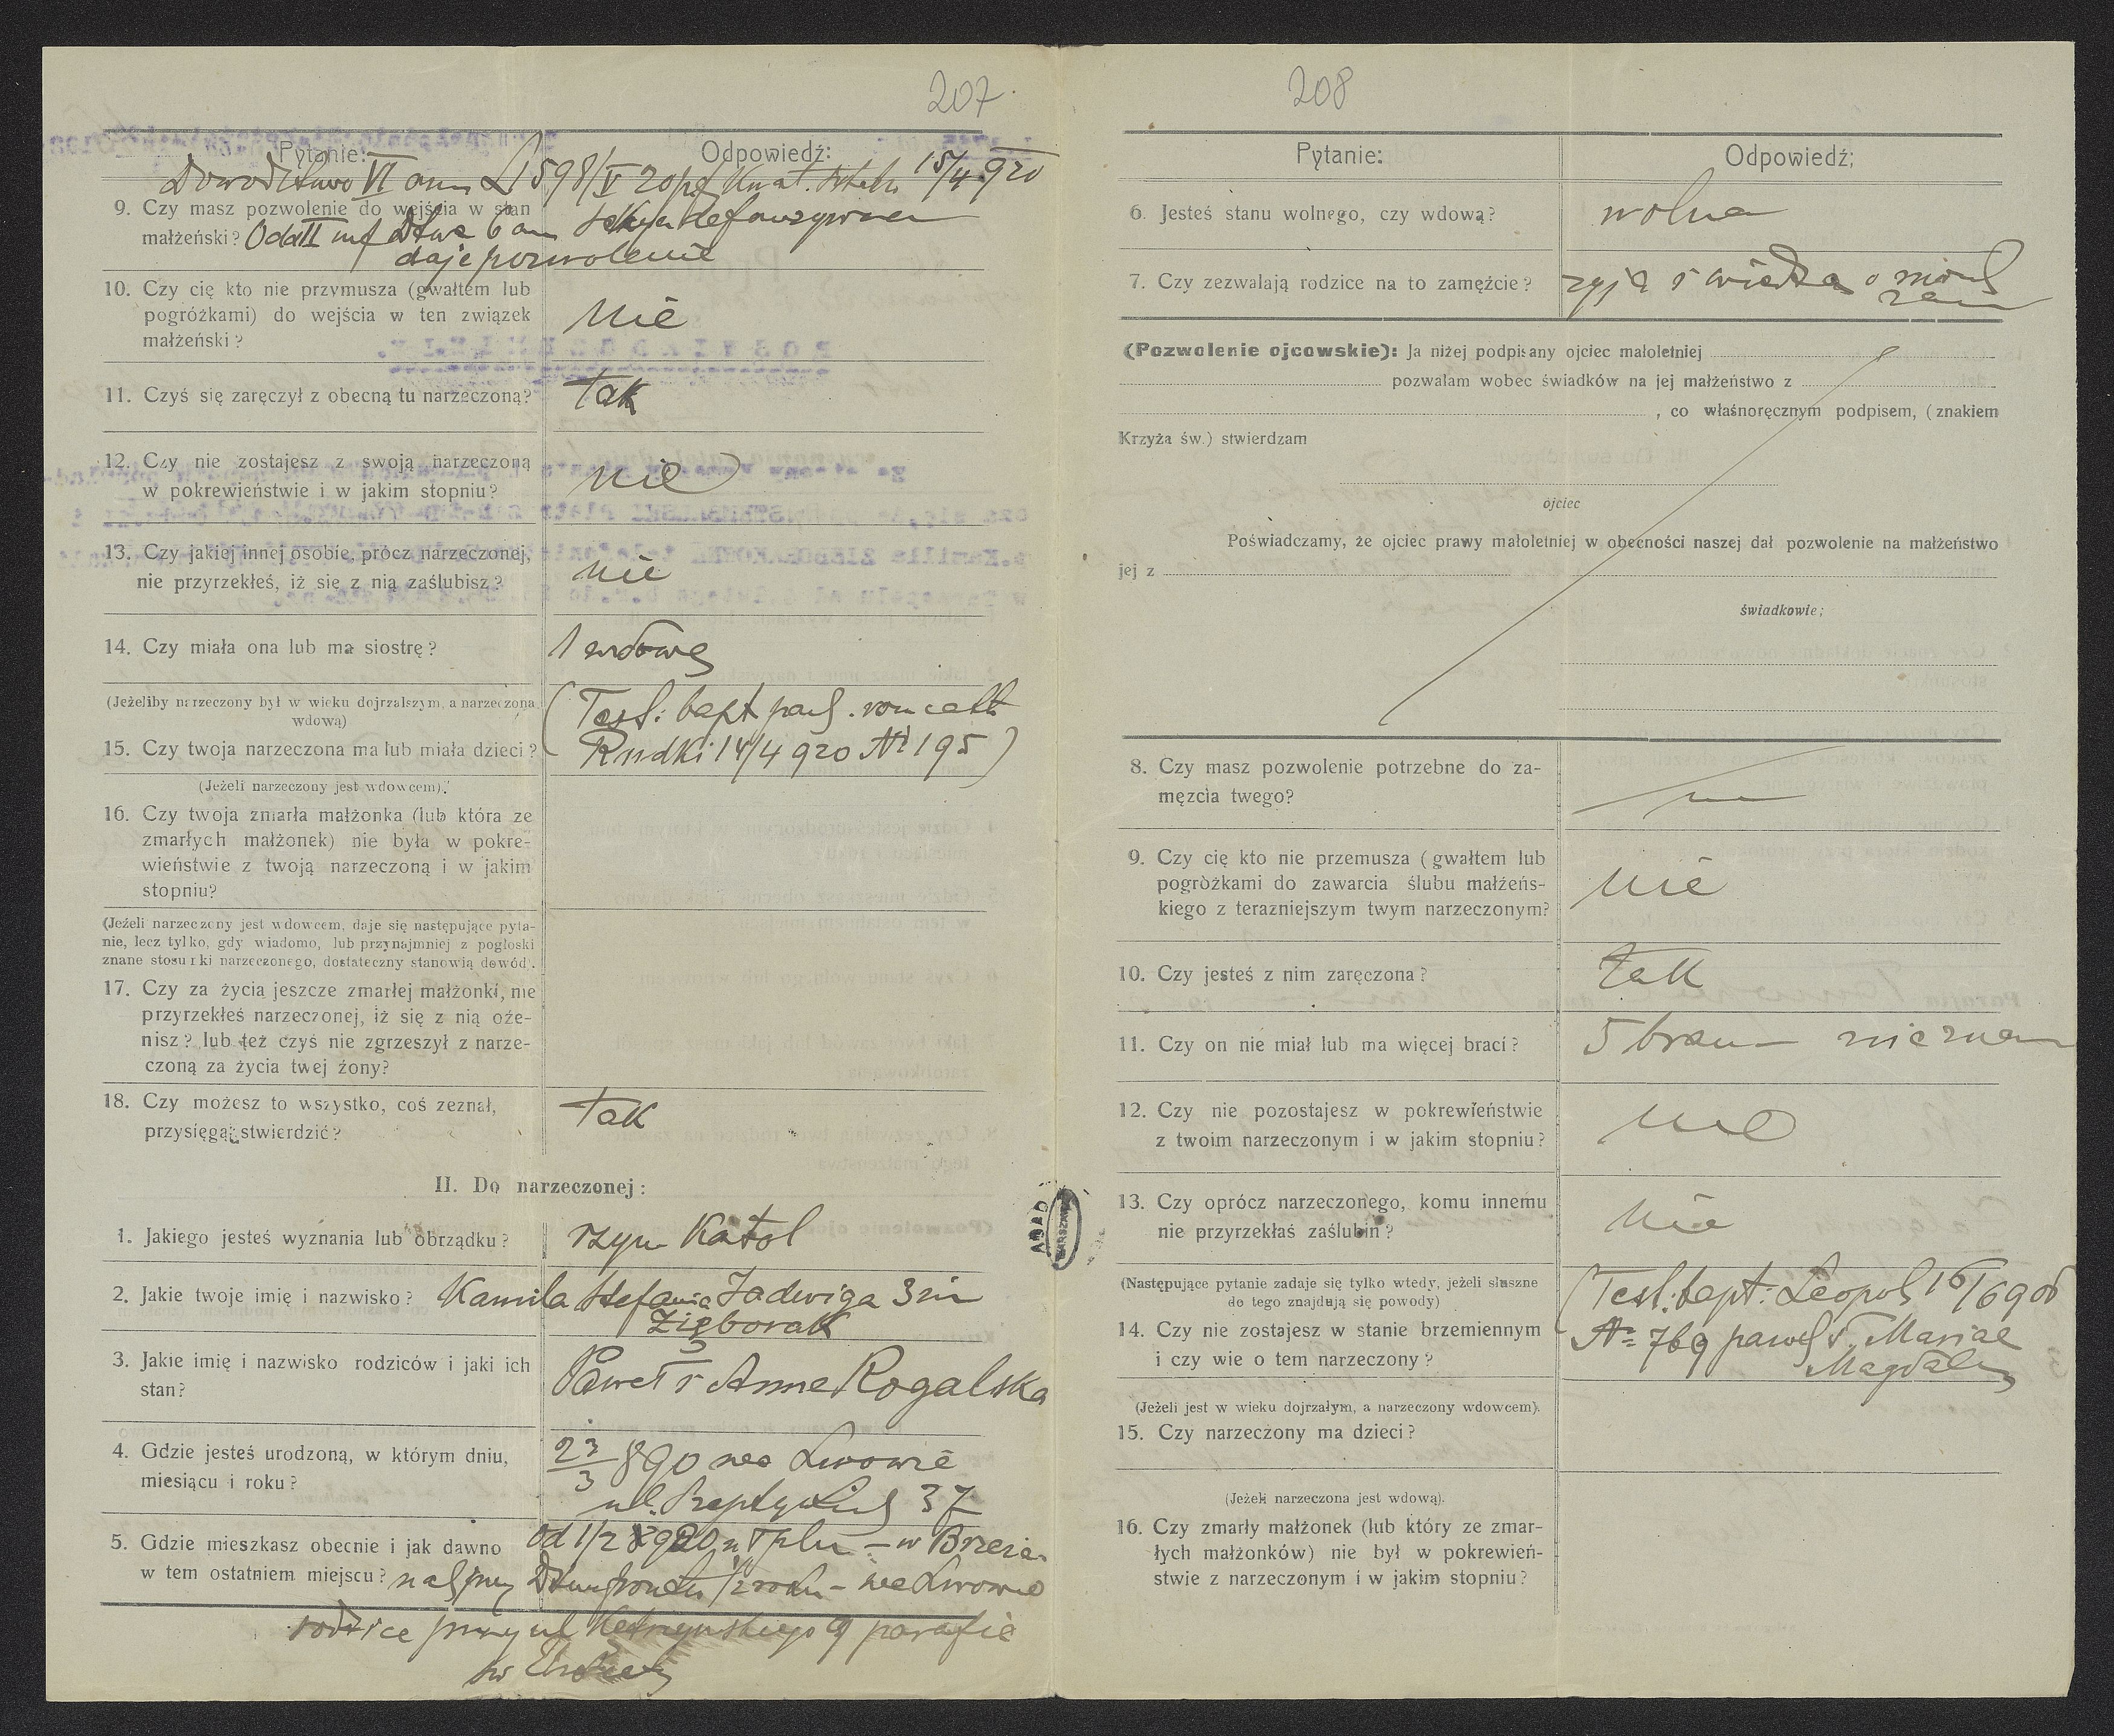 207
Pytanie:
Odpowiedź:
Dowództwo VI L 598/V 15/4 920
9. Czy masz pozwolenie do wejścia w stan
małżeński? Od II inf
daje pozwolenie
10. Czy cię kto nie przymusza (gwałtem lub
pogróżkami) do wejścia w ten związek
małżeński?
nie
11. Czyś się zaręczył z obecną tu narzeczoną?
tak
12. Czy nie zostajesz z swoją narzeczoną
w pokrewieństwie i w jakim stopniu?
nie
13. Czy jakiej innej osobie, prócz narzeczonej,
nie przyrzekłeś, iż się z nią zaślubisz?
nie
14. Czy miała ona lub ma siostrę?
1 wdowę
(Jeżeliby narzeczony był w wieku dojrzalszym, a narzeczona
wdową)
15. Czy twoja narzeczona ma lub miała dzieci?
(Test: bapt par.
Rudki 14/4 920 № 195)
(Jeżeli narzeczony jest wdowcem).
16. Czy twoja zmarła małżonka (lub która ze
zmarłych małżonek) nie była w pokre-
wieństwie z twoją narzeczoną i w jakim
stopniu?
(Jeżeli narzeczony jest wdowcem, daje się następujące pyta-
nie, lecz tylko, gdy wiadomo, lub przynajmniej z pogłoski
znane stosunki narzeczonego, dostateczny stanowią dowód).
17. Czy za życia jeszcze zmarłej małżonki, nie
przyrzekłeś narzeczonej, iż się z nią oże-
nisz? lub też czyś nie zgrzeszył z narze-
czoną za życia twej żony?
18. Czy możesz to wszystko, coś zeznał,
przysięgą stwierdzić?
tak
II. Do narzeczonej:
1. Jakiego jesteś wyznania lub obrządku?
rzym Katol
2. Jakie twoje imię i nazwisko? Kamila Stefania Jadwiga 3 im
Zięborak
3. Jakie imię i nazwisko rodziców i jaki ich
stan?
Paweł i Anna Rogalska
4. Gdzie jesteś urodzoną, w którym dniu,
miesiącu i roku?
23/3 890 we Lwowie
ul. 37
5. Gdzie mieszkasz obecnie i jak dawno
w tem ostatniem miejscu?
od 1/2 920 w
we Lwowie
rodzice przy ul Kętrzyńskiego 9 parafie
św Elżbiety
208
Pytanie:
Odpowiedź;
6. Jesteś stanu wolnego, czy wdową?
wolna
7. Czy zezwalają rodzice na to zamęźcie?
żyją i wiedzą o
(Pozwolenie ojcowskie): Ja niżej podpisany ojciec małoletniej
pozwalam wobec świadków na jej małżeństwo z
, co właśnoręcznym podpisem, (znakiem
Krzyża św.) stwierdzam
ojciec
Poświadczamy, że ojciec prawy małoletniej w obecności naszej dał pozwolenie na małżeństwo
jej z
świadkowie;
8. Czy masz pozwolenie potrzebne do za-
męzcia twego?
9. Czy cię kto nie przemusza (gwałtem lub
pogróżkami do zawarcia ślubu małżeńs-
kiego z terazniejszym twym narzeczonym?
nie
10. Czy jesteś z nim zaręczona?
tak
11. Czy on nie miał lub ma więcej braci?
5 braci – nie znam
12. Czy nie pozostajesz w pokrewieństwie
z twoim narzeczonym i w jakim stopniu?
nie
13. Czy oprócz narzeczonego, komu innemu
nie przyrzekłaś zaślubin?
nie
(Następujące pytanie zadaje się tylko wtedy, jeżeli słuszne
do tego znajdują się powody)
14. Czy nie zostajesz w stanie brzemiennym
i czy wie o tem narzeczony?
(Test: bapt: Leopol 16/6 908
№ 769 S. Mariae
Magdal
(Jeżeli jest w wieku dojrzałym, a narzeczony wdowcem).
15. Czy narzeczony ma dzieci?
(Jeżeli narzeczona jest wdową).
16. Czy zmarły małżonek (lub który ze zmar-
łych małżonków) nie był w pokrewień-
stwie z narzeczonym i w jakim stopniu?
AGAD
WARSZAWA